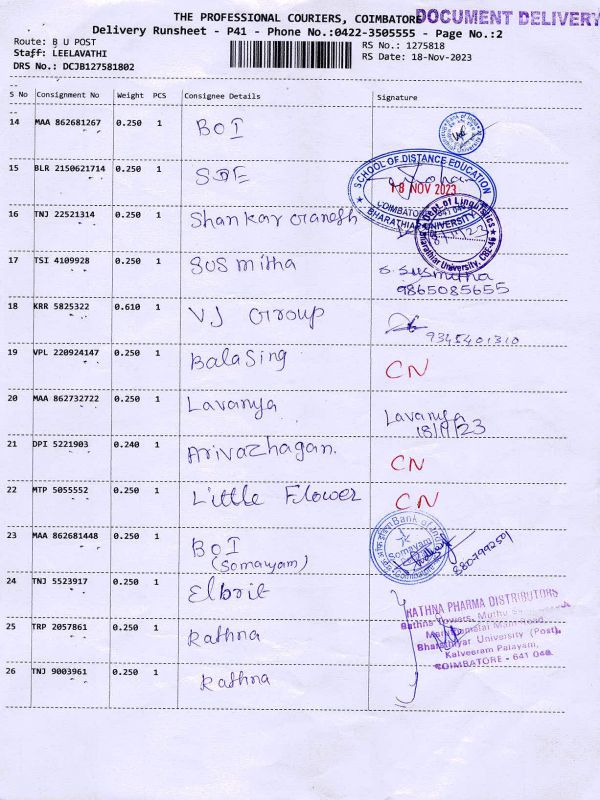 THE PROFESSIONAL COURIERS, COIMBATORE
DOCUMENT DELIVERY
Delivery Runsheet - P41 - Phone No.:0422-3505555 - Page No.:2
Route: B U POST
Staff: LEELAVATHI
DRS No.: DCJB127581802
RS No.: 1275818
RS Date: 18-Nov-2023
S No Consignment No Weight PCS Consignee Details Signature
14 MAA 862681267 0.250 1 BOI
15 BLR 2150621714 0.250 1 SDE
SCHOOL OF DISTANCE EDUCATION
18 NOV 2023
COIMBATORE 641 046
BHARATHIAR UNIVERSITY
16 TNJ 22521314 0.250 1 Shankar Ganesh
Dept of Linguistics
Bharathiar University, CBE-46
17 TSI 4109928 0.250 1 Susmitha S. Susmitha
9865085655
18 KRR 5825322 0.610 1 VJ Group 9345401310
19 VPL 220924147 0.250 1 Balasing CN
20 MAA 862732722 0.250 1 Lavanya Lavanya
18/11/23
21 DPI 5221903 0.240 1 Arivazhagan. CN
22 MTP 5055552 0.250 1 Little Flower CN
23 MAA 862681448 0.250 1 BOI
(Somayam)
Bank of India
Somayam
Coimbatore
8807992501
24 TNJ 5523917 0.250 1 Elbrit
25 TRP 2057861 0.250 1 Rathna
RATHNA PHARMA DISTRIBUTORS
Rathna Towers,
Maruthamalai Main Road,
Bharathiyar University (Post),
Kalveeram Palayam,
COIMBATORE - 641 046
26 TNJ 9003961 0.250 1 Rathna